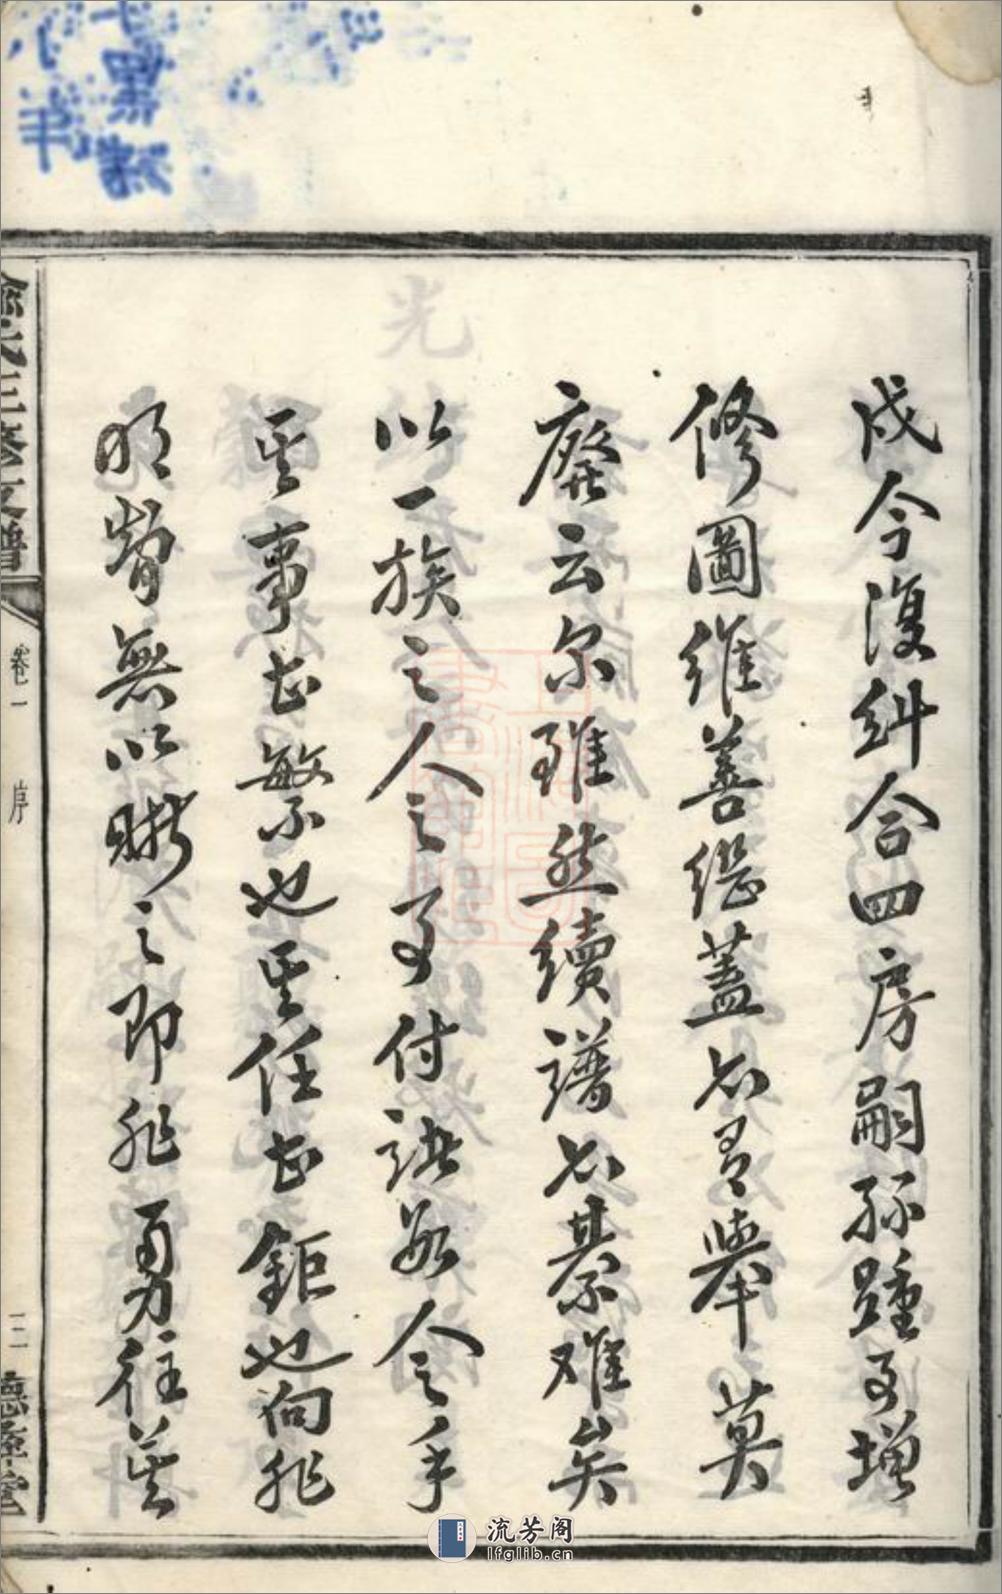 戌今復糾合四房嗣孫踵事增
修圖維善繼蓋亦有舉莫
廢云尔雖然續譜亦綦难矣
以一族之人之事付諸數人之手
其事甚繁也其任甚鉅也向非
明無以晰之即非勇往其
氏三修支譜
卷一 序
堂
流芳阁
lfglib.cn